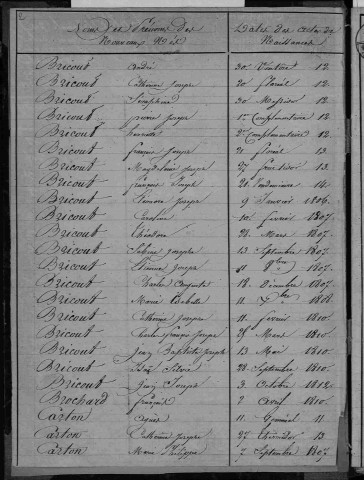 2
Noms et Prénoms des Nouveaux Nés
Dates des actes de Naissances
Bricout André 30 Ventôse 12
Bricout Catherine Joseph 20 Floréal 12
Bricout Josephine 30 Messidor 12
Bricout Pierre Joseph 1er Complémentaire 12
Bricout 2e Complémentaire 12
Bricout François Joseph 21 Floréal 13
Bricout Magdelaine Joseph 27 Fructidor 13
Bricout François Joseph 21 Vendémiaire 14
Bricout Joseph 9 Janvier 1806
Bricout Caroline 10 février 1807
Bricout Théodore 22 Mars 1807
Bricout Sabine Josephe 13 Septembre 1807
Bricout Etienne Joseph 11 9bre 1807
Bricout Charles 18 Décembre 1807
Bricout Marie 11 7bre 1808
Bricout Catherine Joseph 11 février 1810
Bricout Charles François Joseph 25 Mars 1810
Bricout Jean Baptiste Joseph 13 Mai 1810
Bricout Silvie 28 Septembre 1810
Bricout Joseph 3 Octobre 1812
Brochard François 2 Avril 1810
Carton Agnès 11 11
Carton Catherine Joseph 27 Thermidor 13
Carton Marie Philippe 7 Septembre 1807